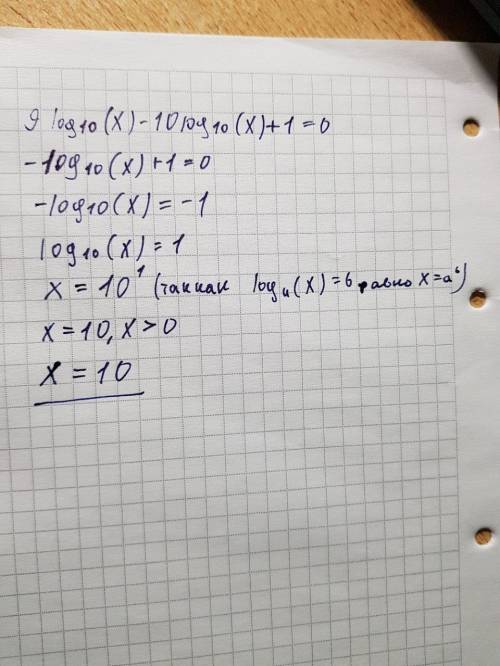 9 log₁₀(x) - 10 log₁₀(x) + 1 = 0
- log₁₀(x) + 1 = 0
- log₁₀(x) = -1
log₁₀(x) = 1
x = 10¹ (так как logₐ(x) = b равно x = aᵇ)
x = 10, x > 0
x = 10